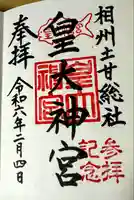 相州土甘総社
皇大神宮
参拝記念
奉拝
令和六年二月四日